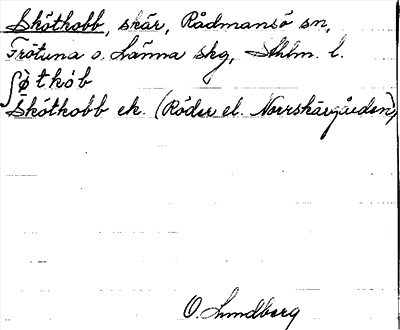 Skötkobb, skär, Rådmansö sn,
Frötuna o. Länna skg, Sthlm. l.
ʃø̀tkòb
Skötkobb ek. (Röder el. Norrskärgården)
O. Lundberg